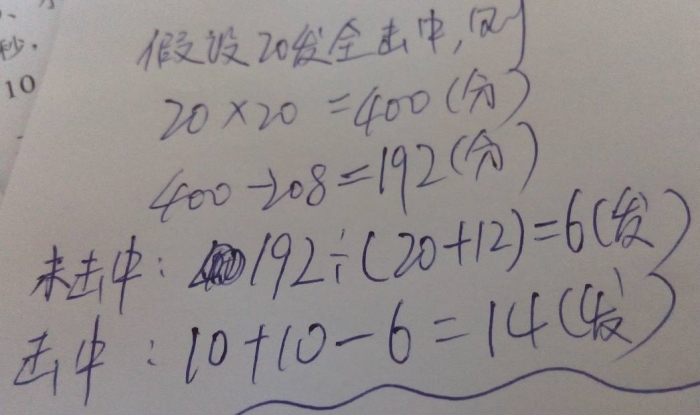 秒.
10
假设20发全击中,则
20×20=400(分)
400-208=192(分)
未击中: 192÷(20+12)=6(发)
击中: 10+10-6=14(发)